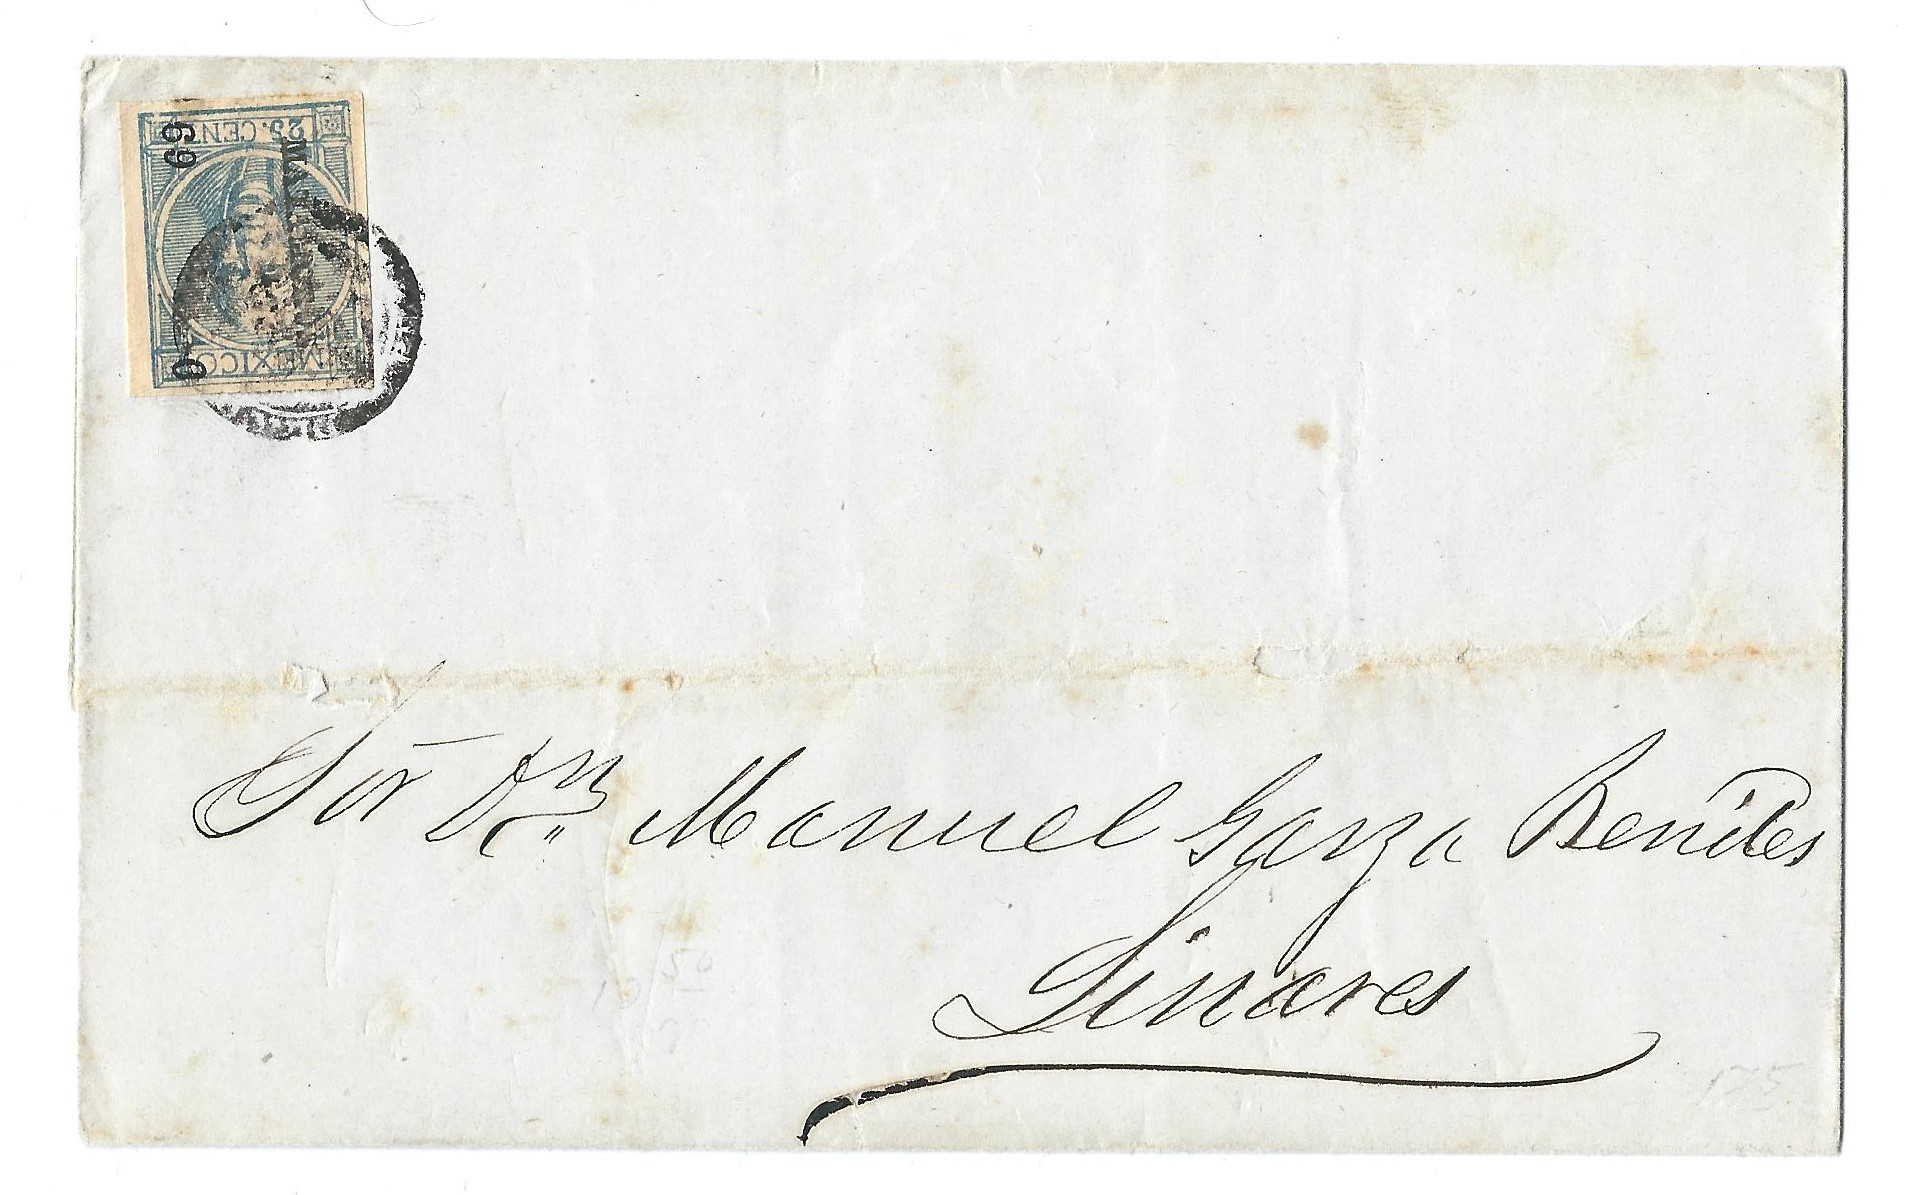 25. CENT
69
MEXICO
Sōr Dn Manuel Garza Benites
Linares
175